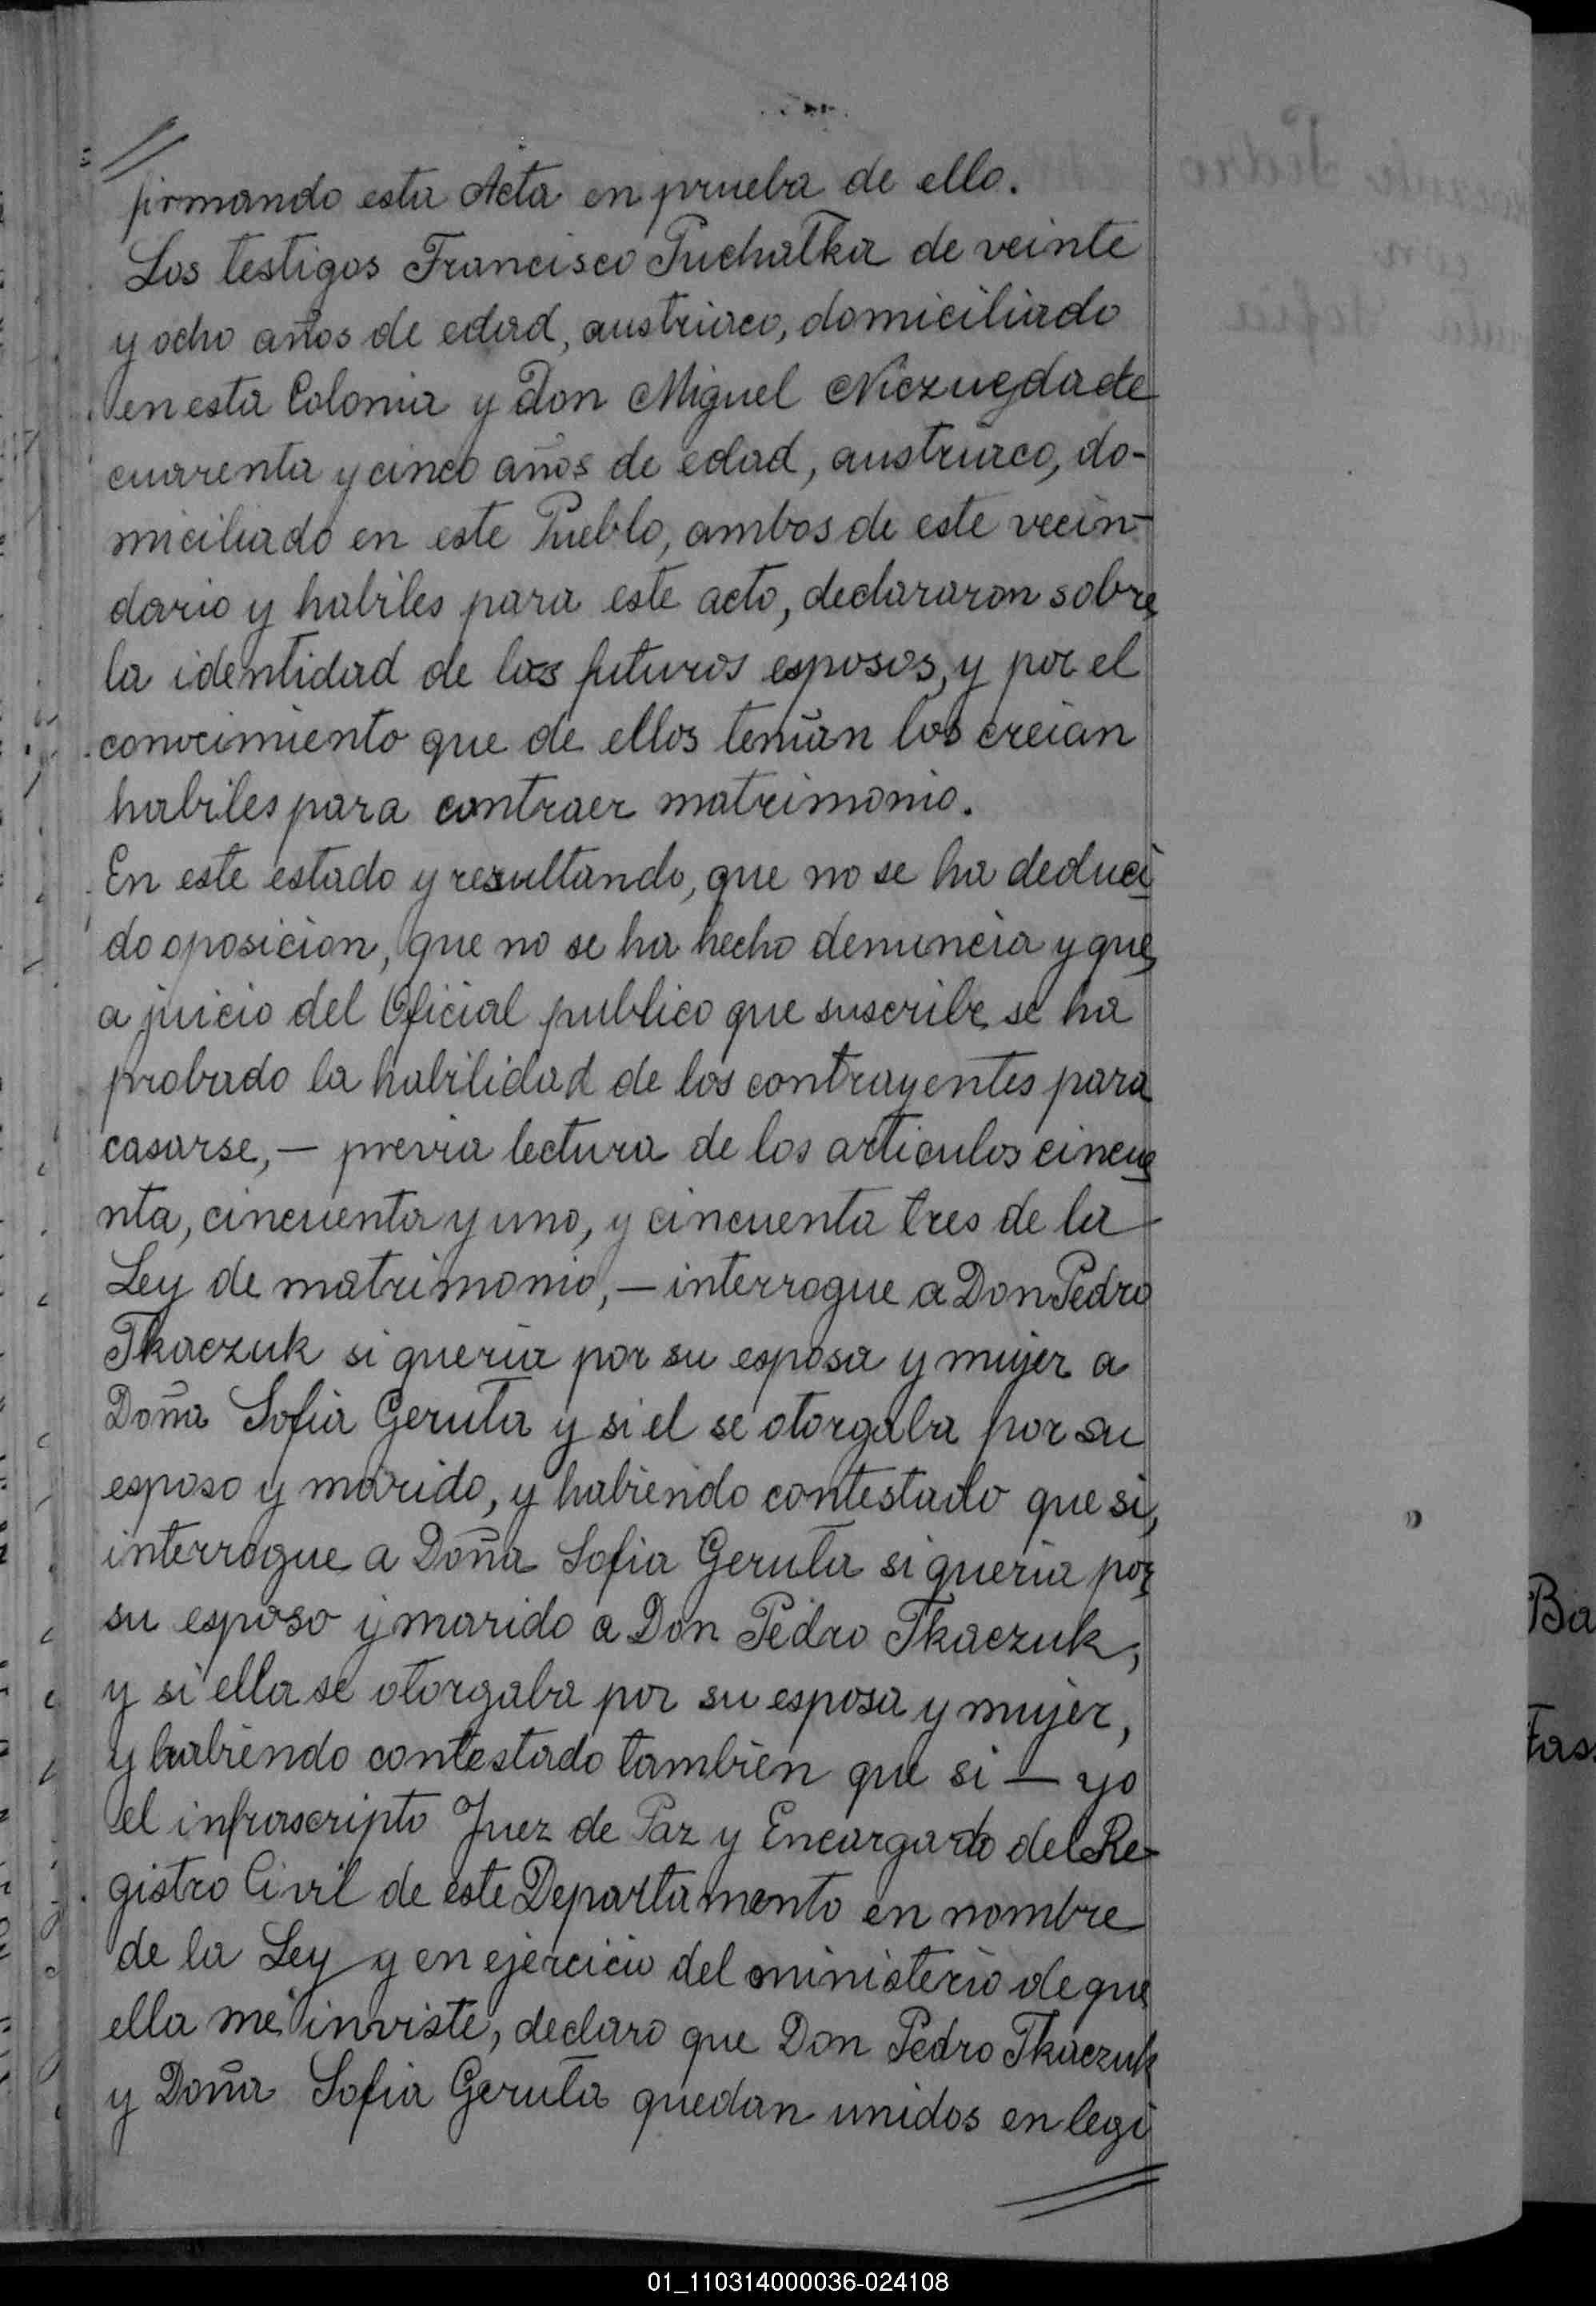 firmando esta Acta en prueba de ello.
Los testigos Francisco Puchalka de veinte
y ocho años de edad, austriaco, domiciliado
en esta Colonia y Don Miguel Niezuegda de
cuarenta y cinco años de edad, austriaco, do-
miciliado en este Pueblo, ambos de este vecin-
dario y habiles para este acto, declararon sobre
la identidad de los futuros esposos, y por el
conocimiento que de ellos tenian los creian
habiles para contraer matrimonio.
En este estado y resultando, que no se ha deduci
do oposicion, que no se ha hecho denuncia y que
a juicio del Oficial publico que suscribe se ha
probado la habilidad de los contrayentes para
casarse, — previa lectura de los articulos cincue
nta, cincuenta y uno, y cincuenta tres de la
Ley de matrimonio, — interrogue a Don Pedro
Tkaczuk si queria por su esposa y mujer a
Doña Sofia Geruta y si el se otorgaba por su
esposo y marido, y habiendo contestado que si,
interrogue a Doña Sofia Geruta si queria por
su esposo y marido a Don Pedro Tkaczuk,
y si ella se otorgaba por su esposa y mujer,
y habiendo contestado tambien que si — yo
el infrascripto Juez de Paz y Encargado del Re-
gistro Civil de este Departamento en nombre
de la Ley y en ejercicio del ministerio de que
ella me inviste, declaro que Don Pedro Tkaczuk
y Doña Sofia Geruta quedan unidos en legi
Ba
01_110314000036-024108